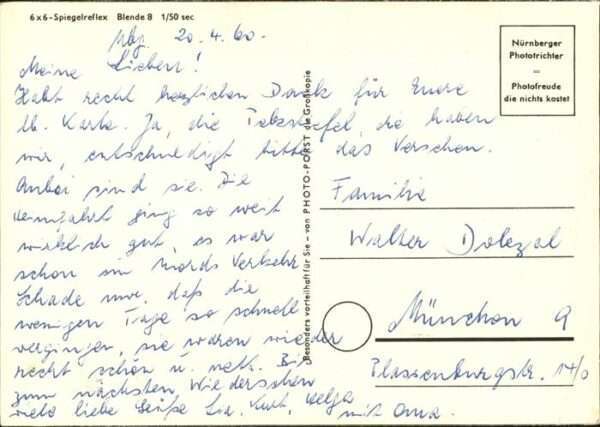 6x6-Spiegelreflex Blende 8 1/50 sec
Nürnberger
Phototrichter
=
Photofreude
die nichts kostet
Nbg. 20.4.60.
Meine Lieben!
Habt recht herzlichen Dank für Eure
lb. Karte. Ja, die haben
wir, entschuldigt bitte das Versehen.
Anbei sind sie. Die
Heimfahrt ging so weit
wirklich gut, es war
schon ein Mords Verkehr
Schade nur, daß die
wenigen Tage so schnell
vergingen, sie waren wieder
recht schön u. nett. Bis
zum nächsten Wiedersehen
viele liebe Grüße Kurt, Helga
mit Oma.
Besonders vorteilhaft für Sie – von PHOTO-PORST die Großkopie
Familie
Walter Dolezal
München 9
Plassenburgstr. 14/0